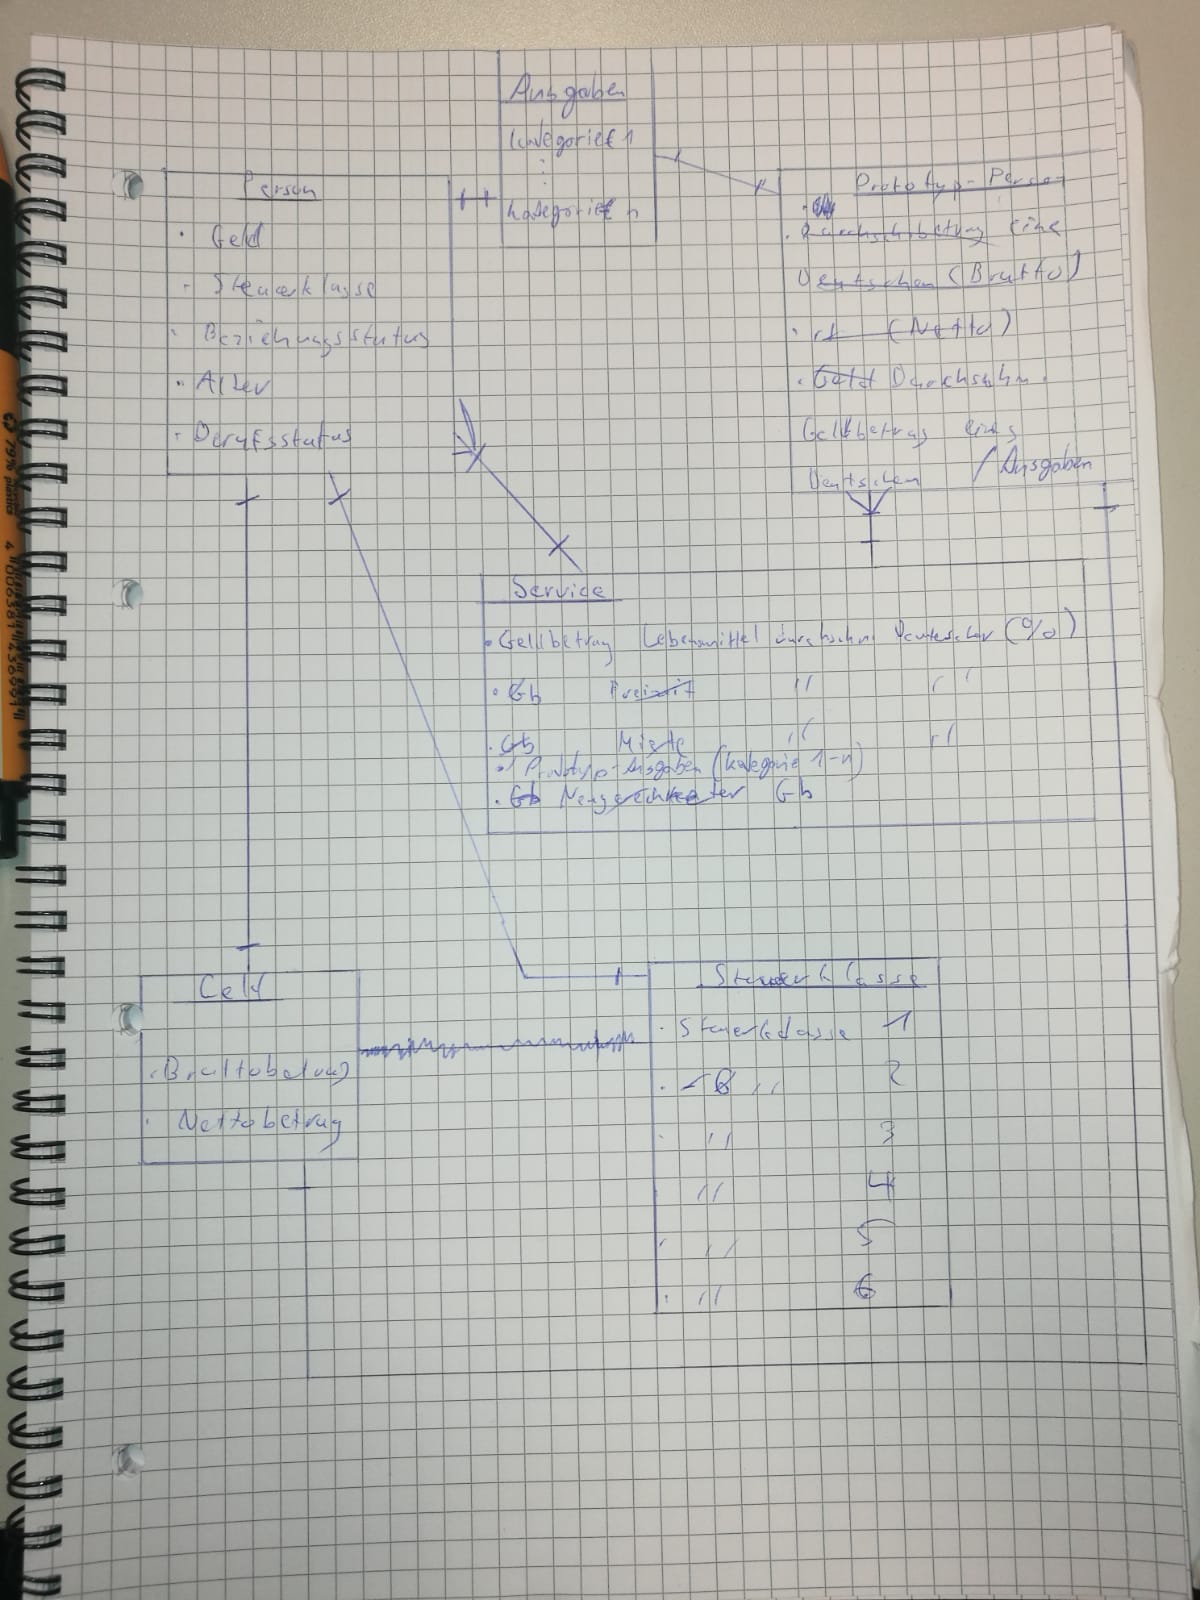 Ausgaben
Kategorie 1
:
Kategorie n
Person
· Geld
· Steuerklasse
· Beziehungsstatus
· Alter
· Berufsstatus
Prototyp-Person
Deutschen (Brutto)
(Netto)
· Geld Durchschn.
Geldbetrag eines
Deutschen / Ausgaben
Service
· Geldbetrag Lebensmittel durchschn. Deutscher (%)
· Gb Freizeit " "
· Gb Miete " "
· Prototyp-Ausgaben (Kategorie 1-n)
· Gb Gb
Geld
· Bruttobetrag
· Nettobetrag
Steuerklasse
· Steuerklasse 1
· " 2
· " 3
" 4
· " 5
· " 6
79% plastics
4 006381